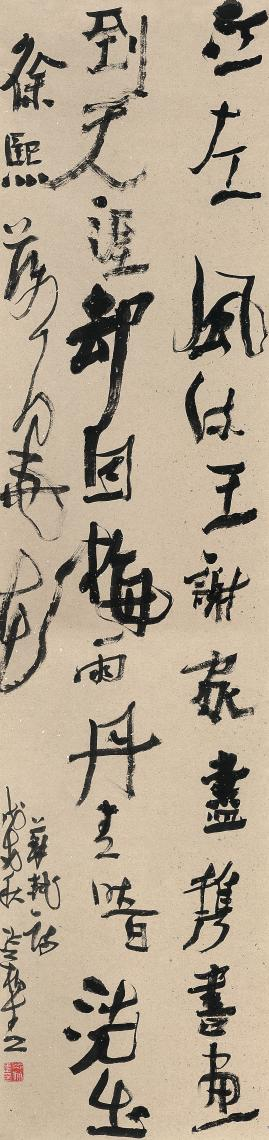 江左風流王謝家盡攜書畫
到天涯却因梅雨丹青暗洗出
徐熙落墨花
蘇軾詩
秋